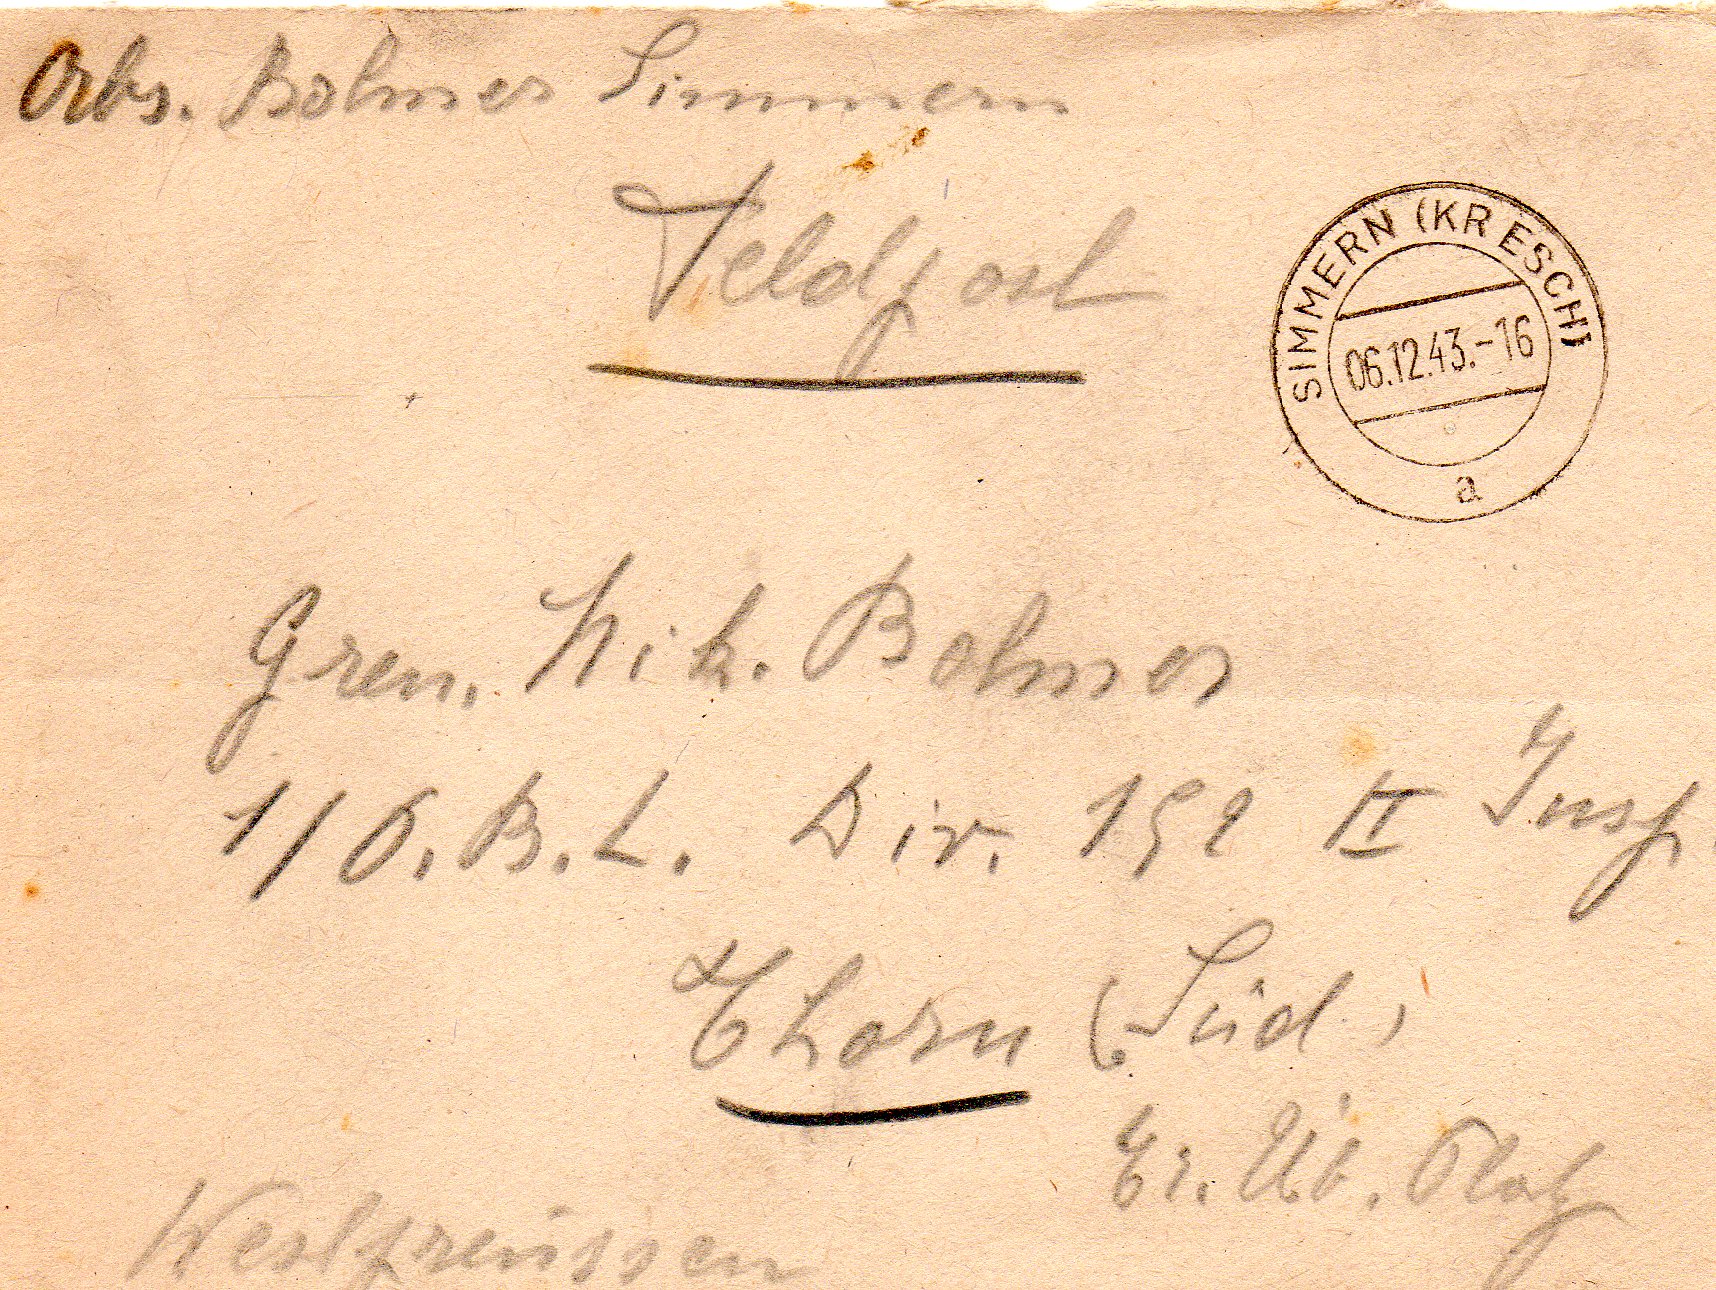 Orbs. Bohmer Simmern
Feldpost
SIMMERN (KR ESCH)
06.12.43.-16
a
Gren. Nik. Bohmer
1/O.B.L. Div. 152 II Insp.
Thorn (Süd.)
Tr. Üb. Platz
Westpreussen